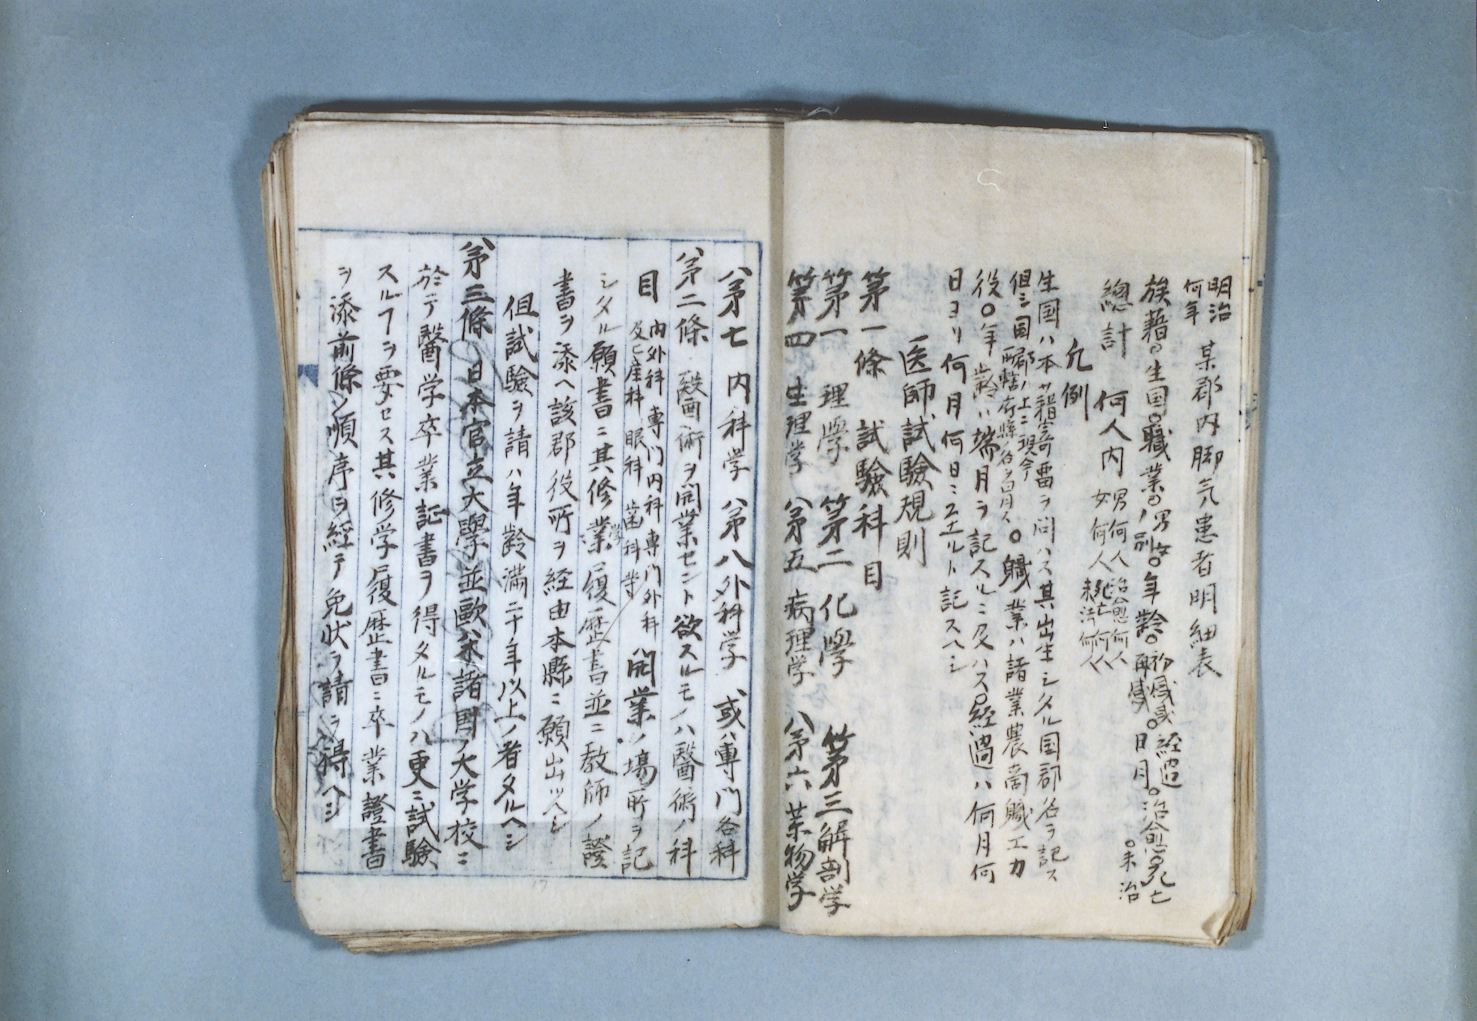 明治何年 某郡内脚気患者明細表
族籍○生国○職業○男女ノ別○年齢○初感再感○経過○日月○治愈○死亡○未治
總計 何人内 男何人 女何人 治愈何人 死亡何人 未治何人
凡例
生国ハ本籍寄畱ヲ問ハス其出生シタル国郡名ヲ記ス
但シ国郡ノ上ニ現今
○職業ハ諸業農商職工力
役○年齢ハ端月ヲ記スルニ及ハス○経過ハ何月何
日ヨリ何月何日ニ至ルト記スヘシ
医師試驗規則
第一條 試驗科目
第一 理學 第二 化學 第三 解剖学
第四 生理学 第五 病理学 第六 薬物学
第七 内科学 第八 外科学 或ハ専門各科
第二條 醫術ヲ開業セント欲スルモノハ醫術ノ科
目 内外科 専門内科 専門外科 及ヒ産科 眼科 歯科等 開業ノ場所ヲ記
シタル願書ニ其修業履歴書並ニ教師ノ證
書ヲ添ヘ該郡役所ヲ経由本縣ニ願出ツヘシ
但試驗ヲ請ハ年齢満二十年以上ノ者タルヘシ
第三條 日本官立大學並歐米諸国ノ大学校ニ
於テ醫学卒業証書ヲ得タルモノハ更ニ試驗
スルヿヲ要セス其修学履歴書ニ卒業證書
ヲ添前條ノ順序ヲ経テ免状ヲ請ヲ得ヘシ